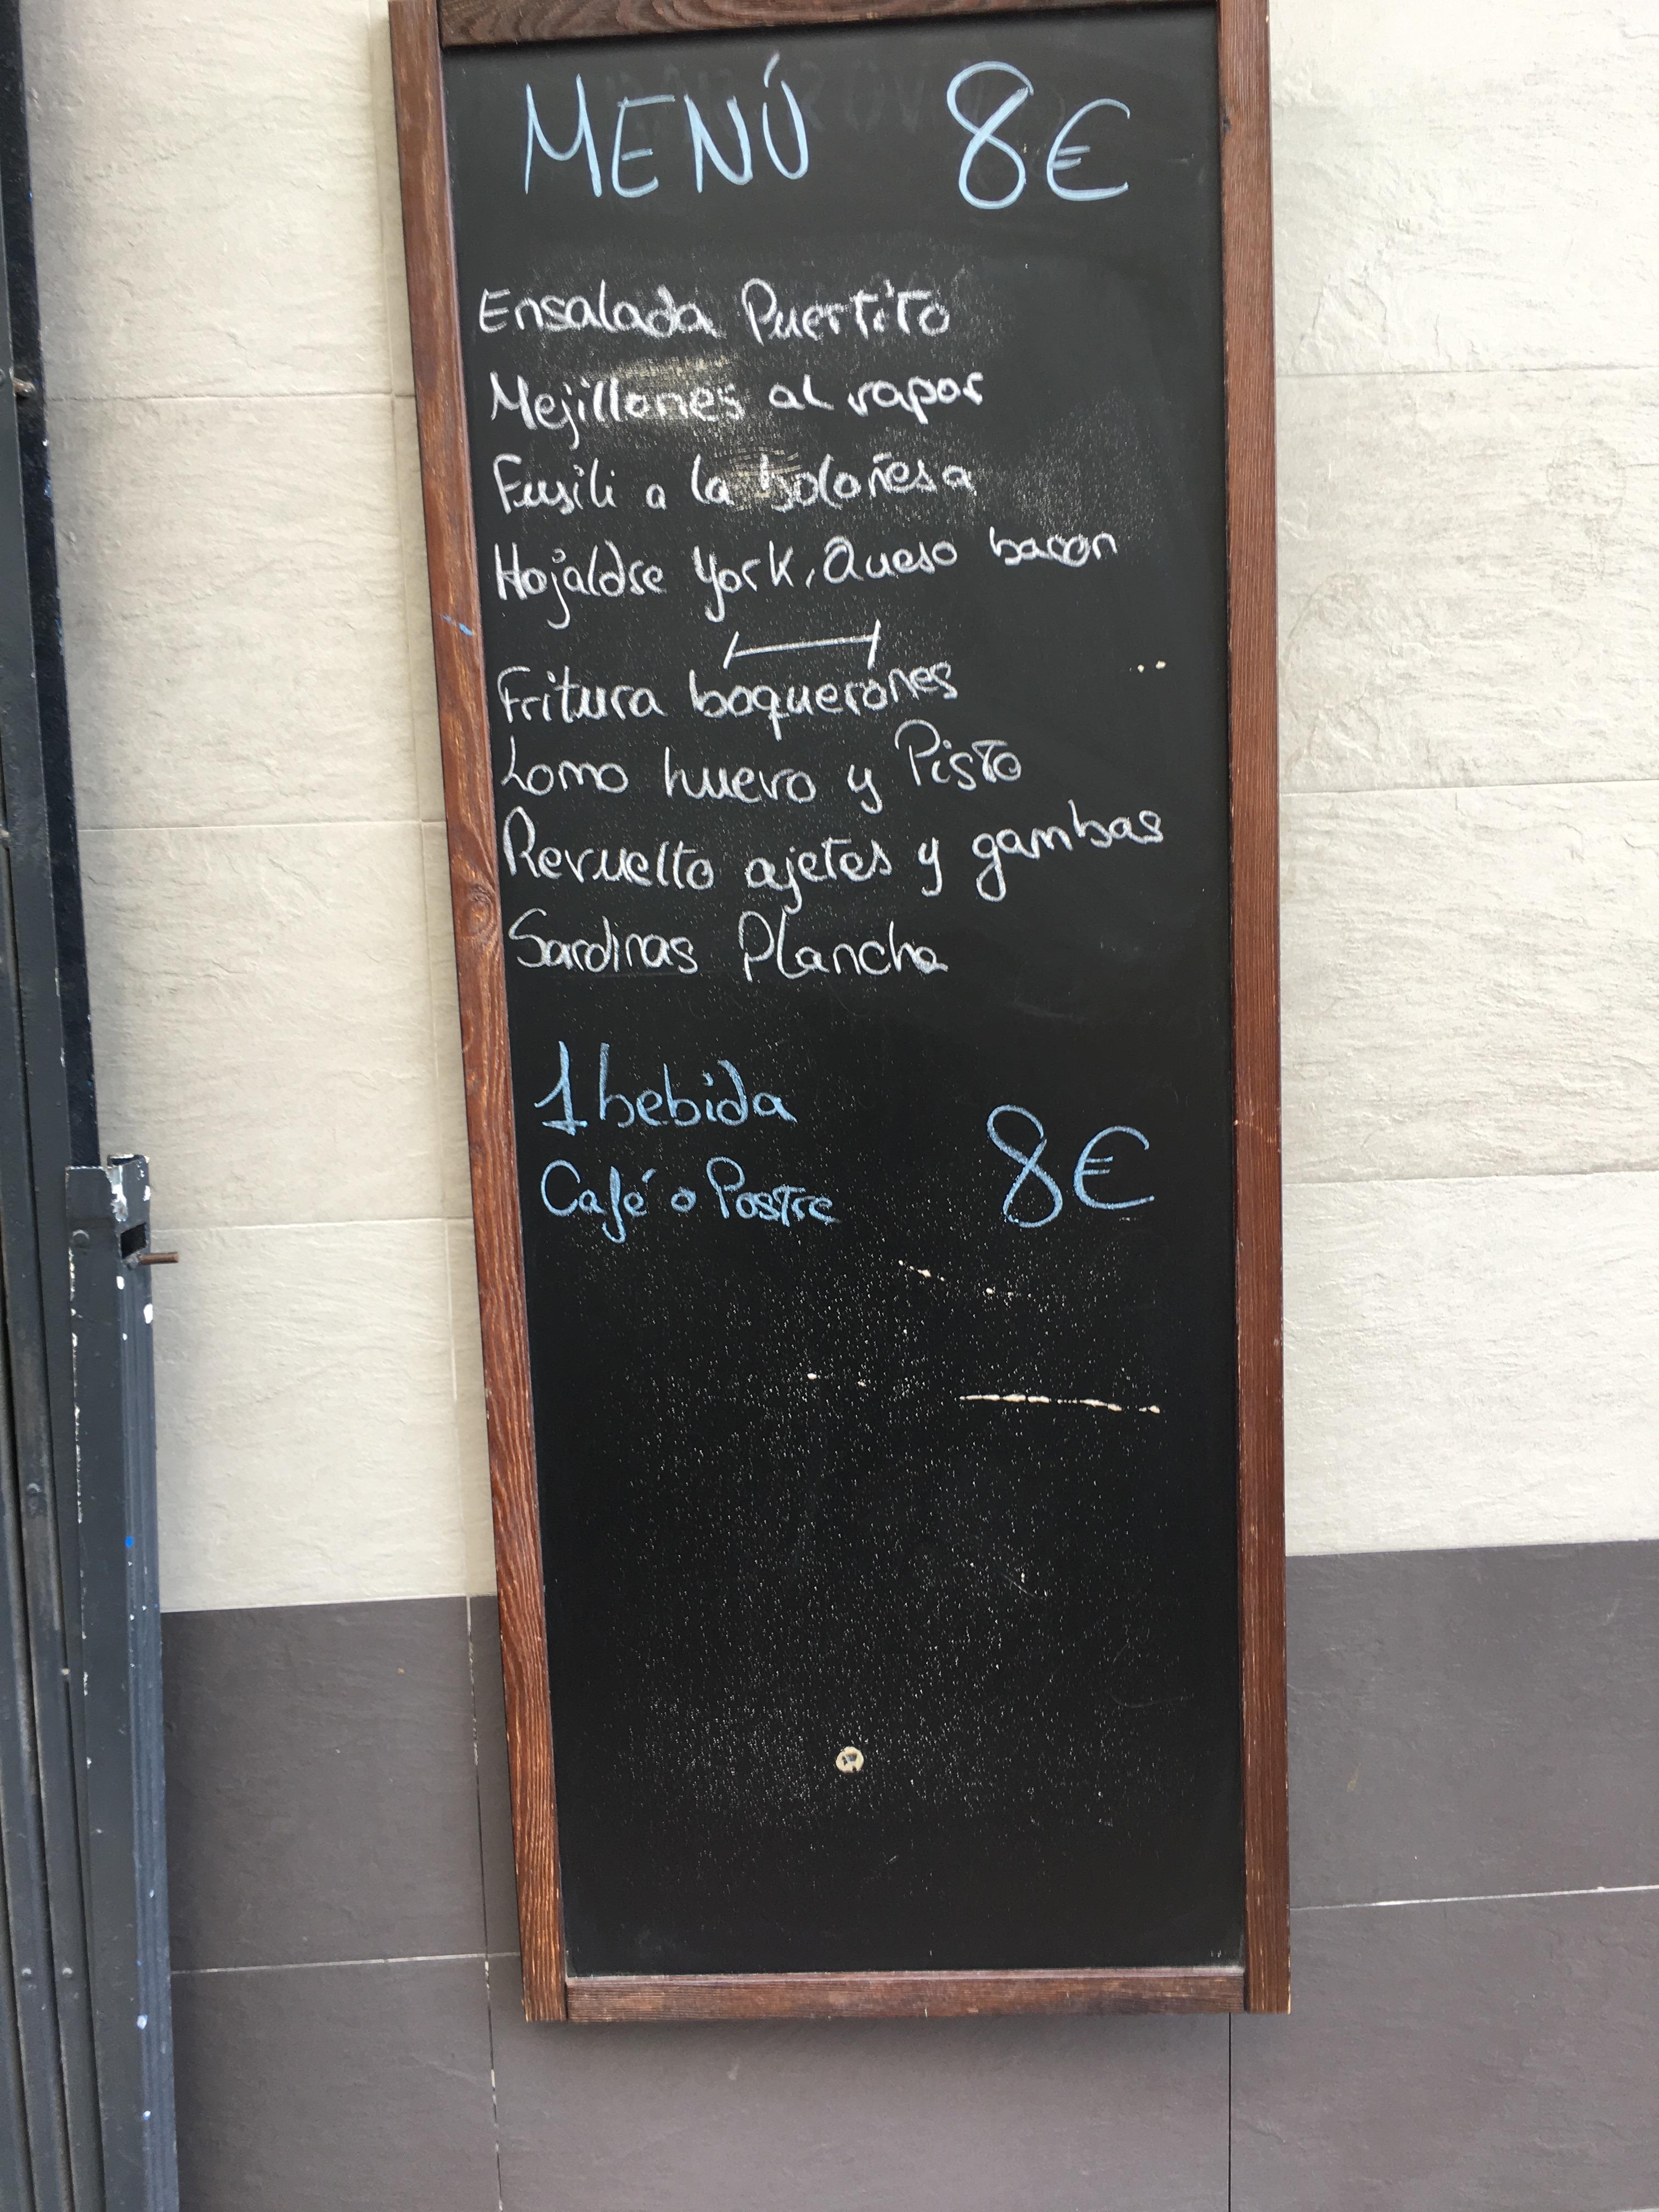 MENÚ 8€
Ensalada Puertito
Mejillones al vapor
Fusili a la boloñesa
Hojaldre York, Queso bacon
Fritura boquerones
Lomo huevo y Pisto
Revuelto ajetes y gambas
Sardinas Plancha
1 bebida
Café o Postre 8€